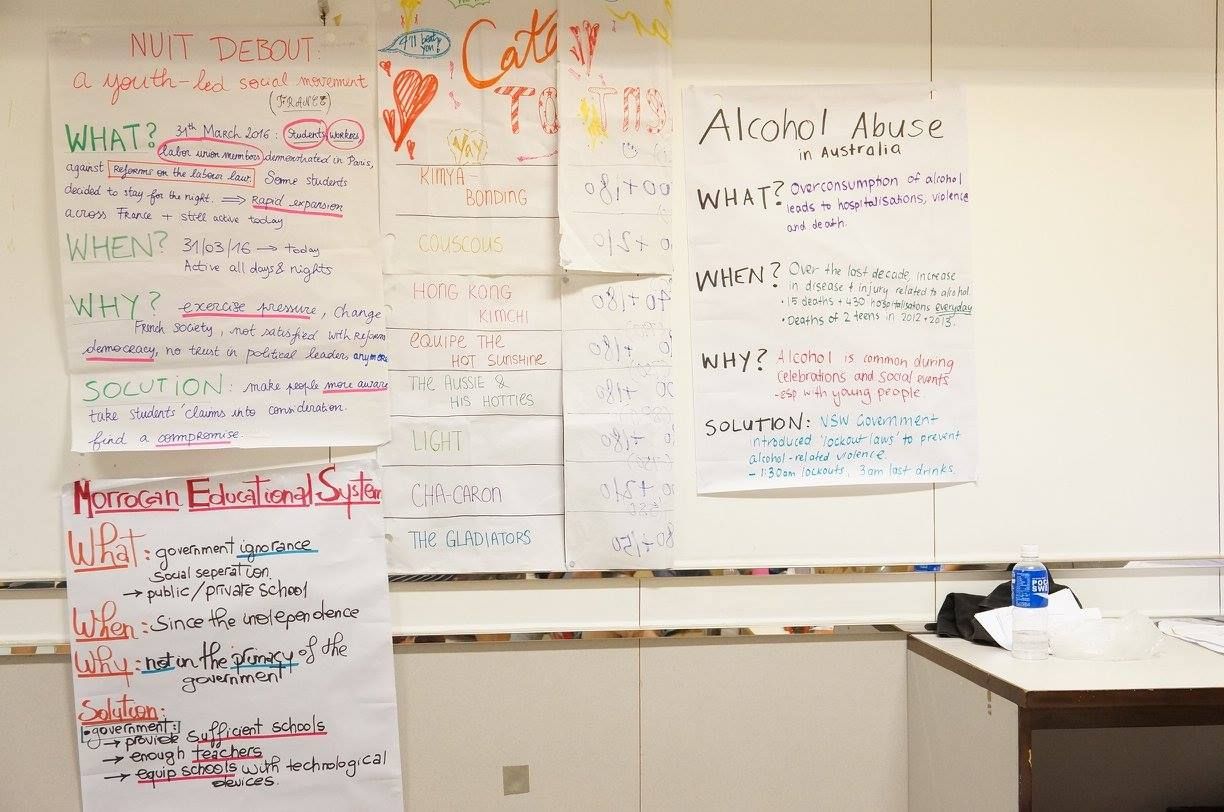 NUIT DEBOUT:
a youth-led social movement
(FRANCE)
WHAT? 31th March 2016 : Students workers
labor union members demonstrated in Paris,
against Reforms on the labour law. Some students
decided to stay for the night. ⟹ Rapid expansion
across France + still active today
WHEN? 31/03/16 → today
Active all days & nights
WHY? exercise pressure, change
French society, not satisfied with Reform
democracy, no trust in political leader, anymore
SOLUTION: make people more aware
take students' claims into consideration.
find a compromise.
Morrocan Educational System
What: government ignorance
Social seperation.
→ public/private school
When: Since the independence
Why: not in the primacy of the
government
Solution:
• government:
→ provide sufficient schools
→ enough teachers
→ equip schools with technological
devices.
Yay
KIMYA-
BONDING
COUSCOUS
HONG KONG
KIMCHI
EQUIPE THE
HOT SUNSHINE
THE AUSSIE &
HIS HOTTIES
LIGHT
CHA-CARON
THE GLADIATORS
Alcohol Abuse
in Australia
WHAT? Overconsumption of alcohol
leads to hospitalisations, violence
and death.
WHEN? Over the last decade, increase
in disease + injury related to alcohol.
• 15 deaths + 430 hospitalisations everyday
• Deaths of 2 teens in 2012 + 2013.
WHY? Alcohol is common during
celebrations and social events
- esp with young people.
SOLUTION: NSW Government
introduced 'lockout laws' to prevent
alcohol-related violence.
- 1:30am lockouts, 3am last drinks.